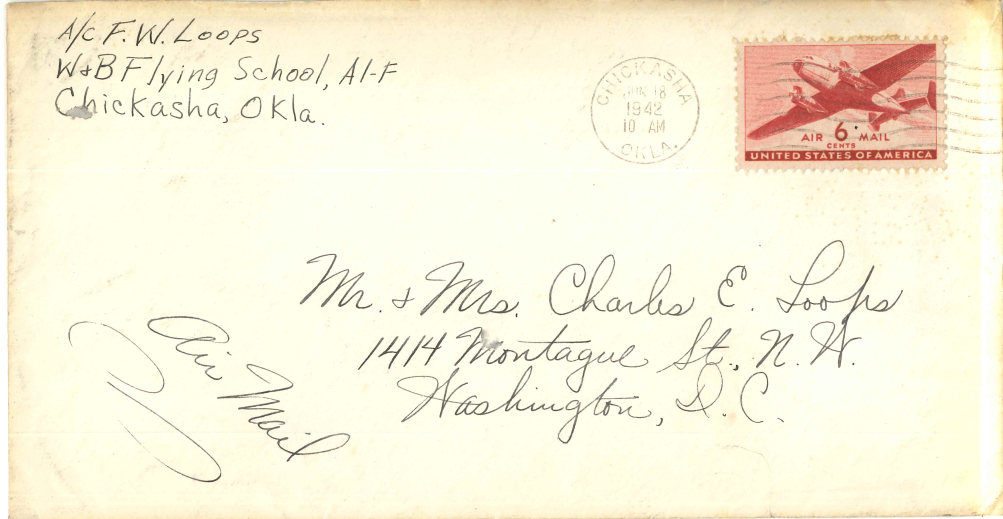 A/C F. W. Loops
W&B Flying School, A1-F
Chickasha, Okla.
CHICKASHA
JUN 18
1942
10 AM
OKLA.
AIR 6 MAIL
CENTS
UNITED STATES OF AMERICA
Mr. & Mrs. Charles E. Loops
1414 Montague St., N. W.
Washington, D. C.
Air Mail